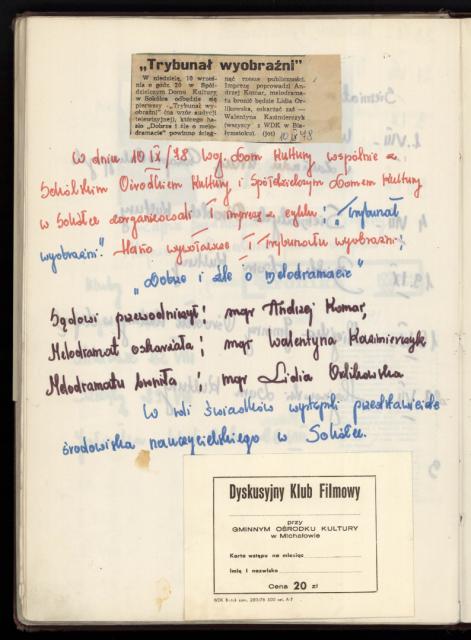 „Trybunał wyobraźni”
W niedzielę, 10 wrześ-
nia o godz. 20 w Spół-
dzielczym Domu Kultury
w Sokółce odbędzie się
pierwszy „Trybunał wy-
obraźni” (na wzór audycji
telewizyjnej), którego ha-
sło „Dobrze i źle o melo-
dramacie” powinno ściąg-
nąć rzesze publiczności.
Imprezę poprowadzi An-
drzej Komar, melodrama-
tu bronić będzie Lidia Or-
likowska, oskarżać zaś —
Walentyna Kazimierczyk
(wszyscy z WDK w Bia-
łymstoku). (jot)
10 IX 78
W dniu 10 IX/78 Woj. Dom Kultury wspólnie z
Sokólskim Ośrodkiem Kultury i Spółdzielczym Domem Kultury
w Sokółce zorganizowali I imprezę z cyklu: „Trybunał
wyobraźni”. Hasło wywoławcze I Trybunału wyobraźni:
„Dobrze i źle o melodramacie”
Sądowi przewodniczył: mgr Andrzej Komar,
Melodramat oskarżała: mgr Walentyna Kazimierczyk
Melodramatu broniła: mgr Lidia Orlikowska
W roli świadków wystąpili przedstawiciele
środowiska nauczycielskiego w Sokółce.
Dyskusyjny Klub Filmowy
przy
GMINNYM OŚRODKU KULTURY
w Michałowie
Karta wstępu na miesiąc
Imię i nazwisko
Cena 20 zł